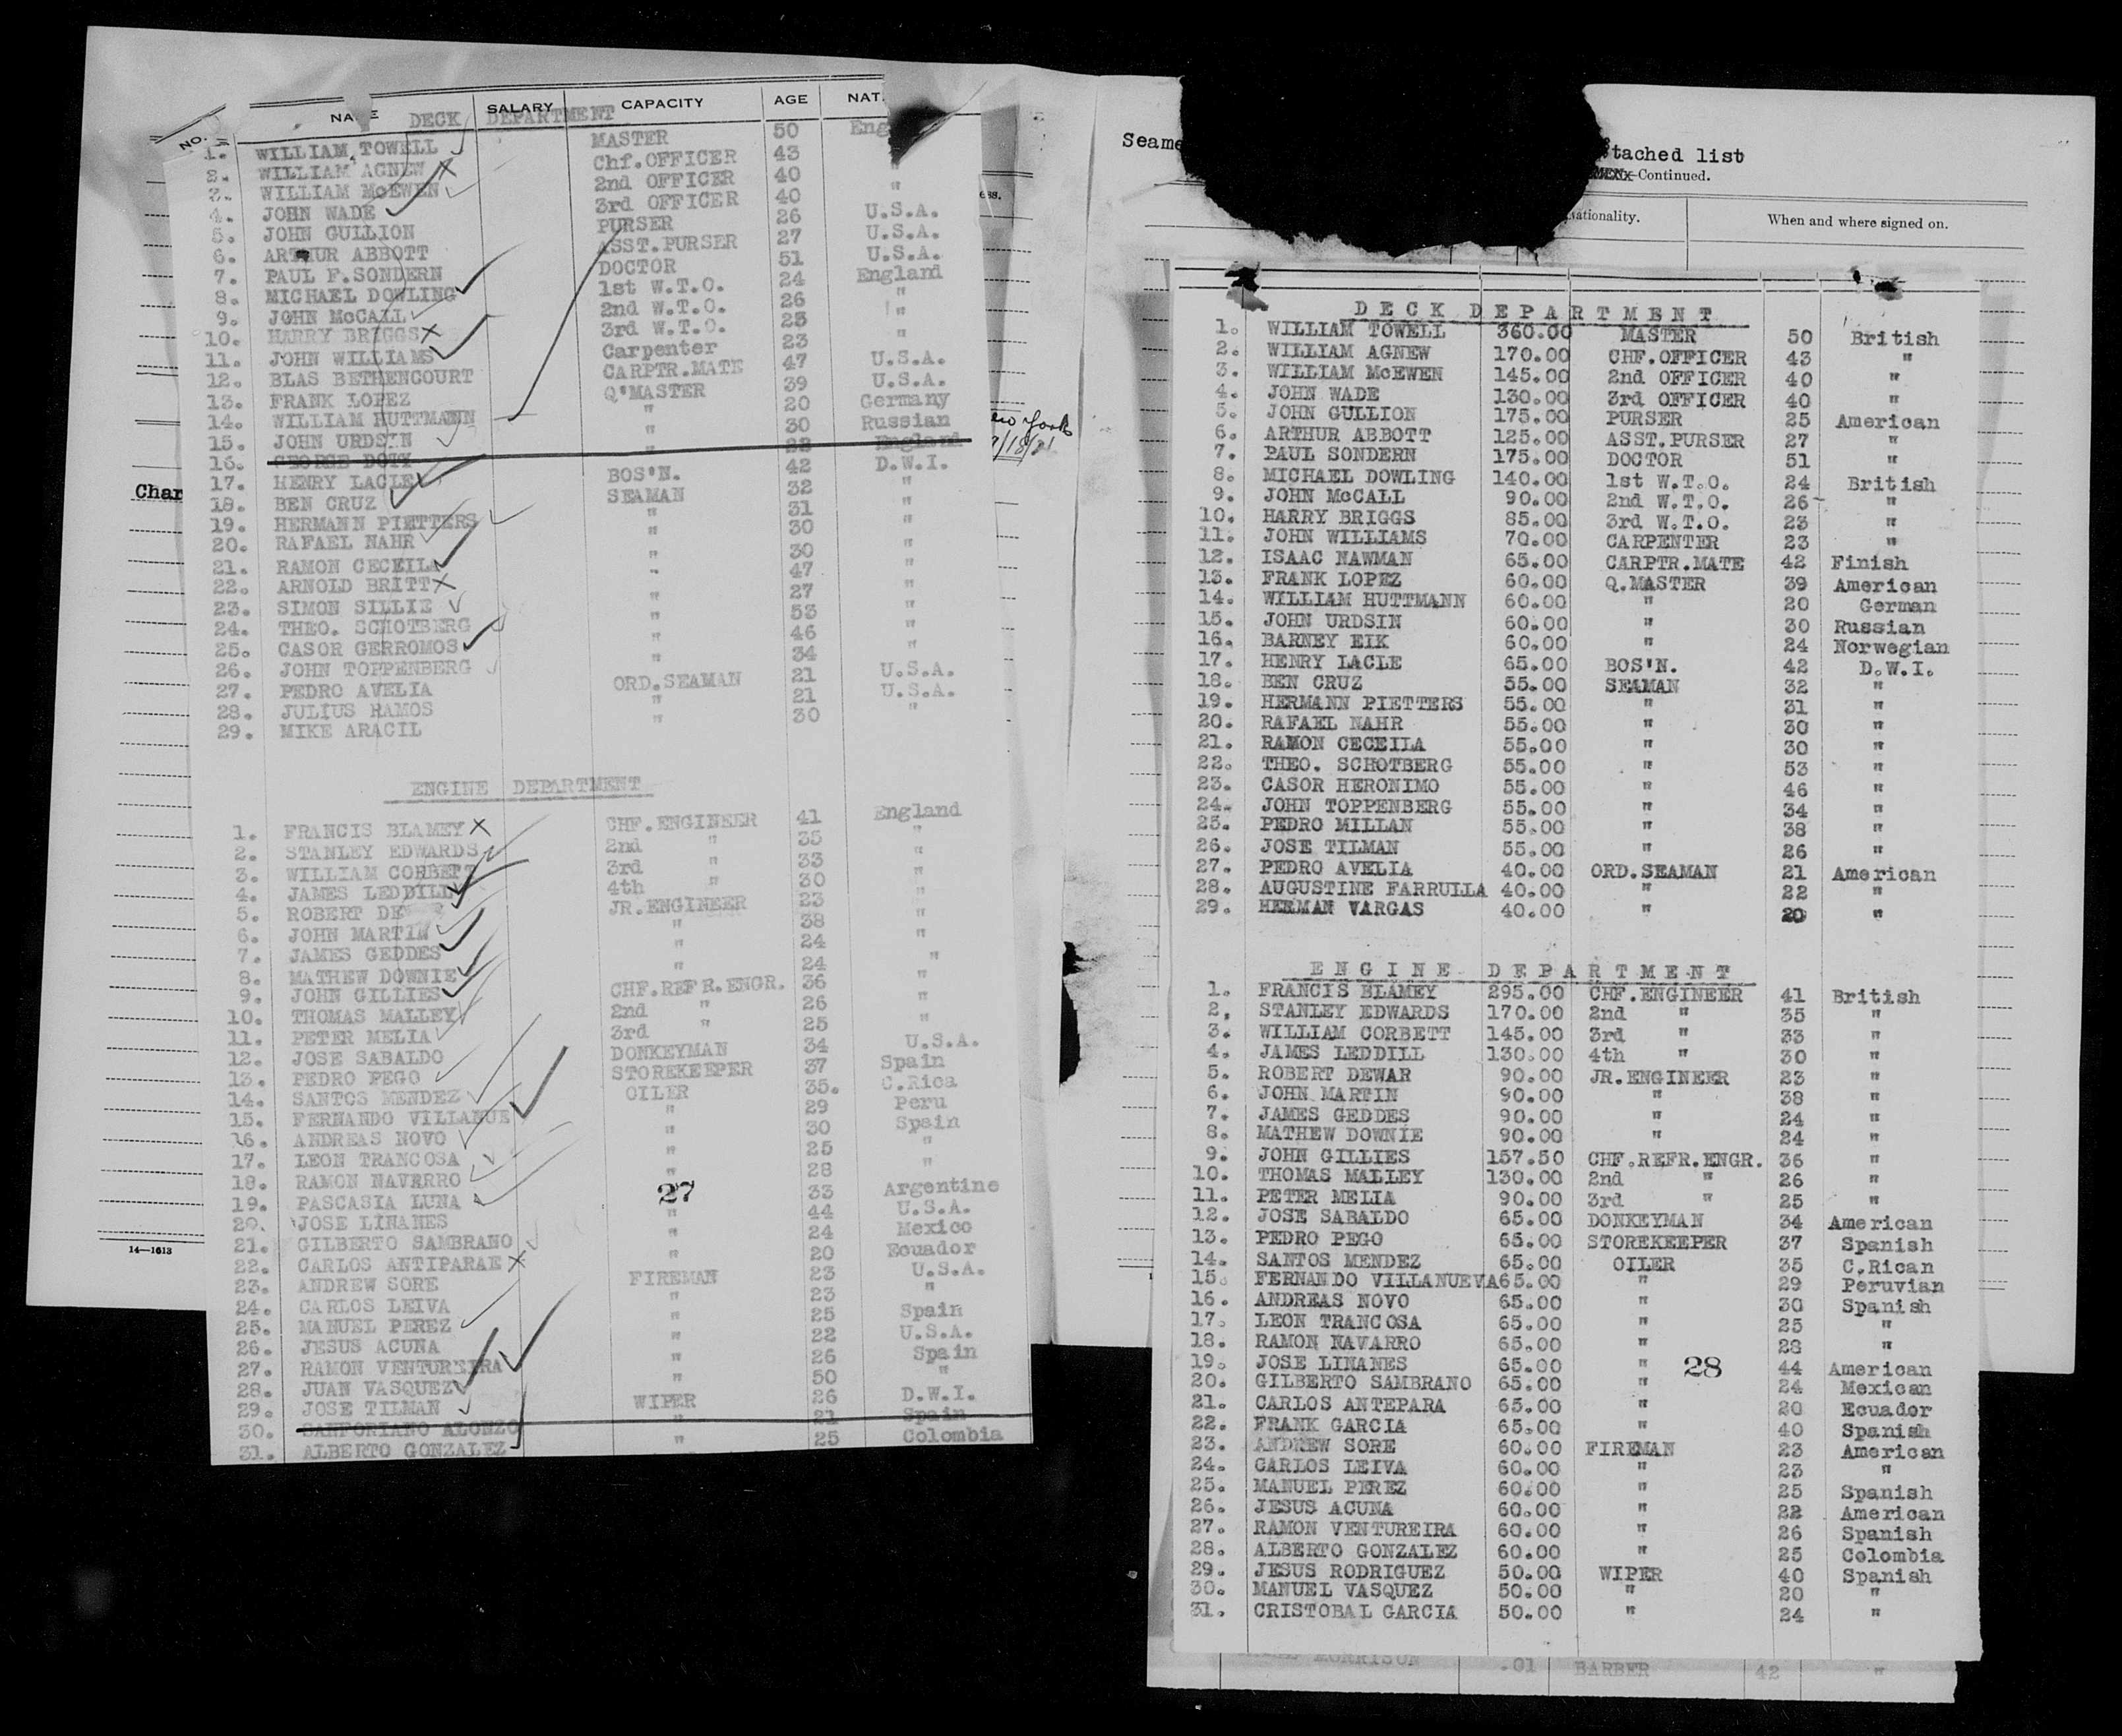 NO. NAME SALARY CAPACITY AGE NAT.
DECK DEPARTMENT
1. WILLIAM TOWELL MASTER 50 Eng
2. WILLIAM AGNEW Chf.OFFICER 43 "
3. WILLIAM McEWEN 2nd OFFICER 40 "
4. JOHN WADE 3rd OFFICER 40 "
5. JOHN GULLION PURSER 26 U.S.A.
6. ARTHUR ABBOTT ASST.PURSER 27 U.S.A.
7. PAUL F.SONDERN DOCTOR 51 U.S.A.
8. MICHAEL DOWLING 1st W.T.O. 24 England
9. JOHN McCALL 2nd W.T.O. 26 "
10. HARRY BRIGGS 3rd W.T.O. 23 "
11. JOHN WILLIAMS Carpenter 23 "
12. BLAS BETHENCOURT CARPTR.MATE 47 U.S.A.
13. FRANK LOPEZ Q'MASTER 39 U.S.A.
14. WILLIAM HUTTMANN " 20 Germany
15. JOHN URDSIN " 30 Russian
16. GEORGE DOTY " 22 England
17. HENRY LACLE BOS'N. 42 D.W.I.
18. BEN CRUZ SEAMAN 32 "
19. HERMANN PIETTERS " 31 "
20. RAFAEL NAHR " 30 "
21. RAMON CECEILA " 30 "
22. ARNOLD BRITT " 47 "
23. SIMON SILLIE " 27 "
24. THEO. SCHOTBERG " 53 "
25. CASOR GERROMOS " 46 "
26. JOHN TOPPENBERG " 34 "
27. PEDRO AVELIA ORD.SEAMAN 21 U.S.A.
28. JULIUS RAMOS " 21 U.S.A.
29. MIKE ARACIL " 30 "
ENGINE DEPARTMENT
1. FRANCIS BLAMEY CHF.ENGINEER 41 England
2. STANLEY EDWARDS 2nd " 35 "
3. WILLIAM CORBETT 3rd " 33 "
4. JAMES LEDDILL 4th " 30 "
5. ROBERT DE JR.ENGINEER 23 "
6. JOHN MARTIN " 38 "
7. JAMES GEDDES " 24 "
8. MATHEW DOWNIE " 24 "
9. JOHN GILLIES CHF.REFR.ENGR. 36 "
10. THOMAS MALLEY 2nd " 26 "
11. PETER MELIA 3rd " 25 "
12. JOSE SABALDO DONKEYMAN 34 U.S.A.
13. PEDRO PEGO STOREKEEPER 37 Spain
14. SANTOS MENDEZ OILER 35. C.Rica
15. FERNANDO VILLANUE " 29 Peru
16. ANDREAS NOVO " 30 Spain
17. LEON TRANCOSA " 25 "
18. RAMON NAVERRO " 28 "
19. PASCASIA LUNA 27 33 Argentine
20. JOSE LINANES " 44 U.S.A.
21. GILBERTO SAMBRANO " 24 Mexico
22. CARLOS ANTIPARAE " 20 Ecuador
23. ANDREW SORE FIREMAN 23 U.S.A.
24. CARLOS LEIVA " 23 "
25. MANUEL PEREZ " 25 Spain
26. JESUS ACUNA " 22 U.S.A.
27. RAMON VENTUREIRA " 26 Spain
28. JUAN VASQUEZ " 50 "
29. JOSE TILMAN WIPER 26 D.W.I.
30. SANFORIANO ALONZO " 21 Spain
31. ALBERTO GONZALEZ " 25 Colombia
Char
14—1613
ess.
ew York
Seame
tached list
-Continued.
ationality. When and where signed on.
DECK DEPARTMENT
1. WILLIAM TOWELL 360.00 MASTER 50 British
2. WILLIAM AGNEW 170.00 CHF.OFFICER 43 "
3. WILLIAM McEWEN 145.00 2nd OFFICER 40 "
4. JOHN WADE 130.00 3rd OFFICER 40 "
5. JOHN GULLION 175.00 PURSER 25 American
6. ARTHUR ABBOTT 125.00 ASST.PURSER 27 "
7. PAUL SONDERN 175.00 DOCTOR 51 "
8. MICHAEL DOWLING 140.00 1st W.T.O. 24 British
9. JOHN McCALL 90.00 2nd W.T.O. 26 "
10. HARRY BRIGGS 85.00 3rd W.T.O. 23 "
11. JOHN WILLIAMS 70.00 CARPENTER 23 "
12. ISAAC NAWMAN 65.00 CARPTR.MATE 42 Finish
13. FRANK LOPEZ 60.00 Q.MASTER 39 American
14. WILLIAM HUTTMANN 60.00 " 20 German
15. JOHN URDSIN 60.00 " 30 Russian
16. BARNEY EIK 60.00 " 24 Norwegian
17. HENRY LACLE 65.00 BOS'N. 42 D.W.I.
18. BEN CRUZ 55.00 SEAMAN 32 "
19. HERMANN PIETTERS 55.00 " 31 "
20. RAFAEL NAHR 55.00 " 30 "
21. RAMON CECEILA 55.00 " 30 "
22. THEO. SCHOTBERG 55.00 " 53 "
23. CASOR HERONIMO 55.00 " 46 "
24. JOHN TOPPENBERG 55.00 " 34 "
25. PEDRO MILLAN 55.00 " 38 "
26. JOSE TILMAN 55.00 " 26 "
27. PEDRO AVELIA 40.00 ORD.SEAMAN 21 American
28. AUGUSTINE FARRULLA 40.00 " 22 "
29. HERMAN VARGAS 40.00 " 20 "
ENGINE DEPARTMENT
1. FRANCIS BLAMEY 295.00 CHF.ENGINEER 41 British
2, STANLEY EDWARDS 170.00 2nd " 35 "
3. WILLIAM CORBETT 145.00 3rd " 33 "
4. JAMES LEDDILL 130.00 4th " 30 "
5. ROBERT DEWAR 90.00 JR.ENGINEER 23 "
6. JOHN MARTIN 90.00 " 38 "
7. JAMES GEDDES 90.00 " 24 "
8. MATHEW DOWNIE 90.00 " 24 "
9. JOHN GILLIES 157.50 CHF.REFR.ENGR. 36 "
10. THOMAS MALLEY 130.00 2nd " 26 "
11. PETER MELIA 90.00 3rd " 25 "
12. JOSE SABALDO 65.00 DONKEYMAN 34 American
13. PEDRO PEGO 65.00 STOREKEEPER 37 Spanish
14. SANTOS MENDEZ 65.00 OILER 35 C.Rican
15. FERNANDO VILLANUEVA65.00 " 29 Peruvian
16. ANDREAS NOVO 65.00 " 30 Spanish
17. LEON TRANCOSA 65.00 " 25 "
18. RAMON NAVARRO 65.00 " 28 "
19. JOSE LINANES 65.00 " 28 44 American
20. GILBERTO SAMBRANO 65.00 " 24 Mexican
21. CARLOS ANTEPARA 65.00 " 20 Ecuador
22. FRANK GARCIA 65.00 " 40 Spanish
23. ANDREW SORE 60.00 FIREMAN 23 American
24. CARLOS LEIVA 60.00 " 23 "
25. MANUEL PEREZ 60.00 " 25 Spanish
26. JESUS ACUNA 60.00 " 22 American
27. RAMON VENTUREIRA 60.00 " 26 Spanish
28. ALBERTO GONZALEZ 60.00 " 25 Colombia
29. JESUS RODRIGUEZ 50.00 WIPER 40 Spanish
30. MANUEL VASQUEZ 50.00 " 20 "
31. CRISTOBAL GARCIA 50.00 " 24 "
MORRISON .01 BARBER 42 "